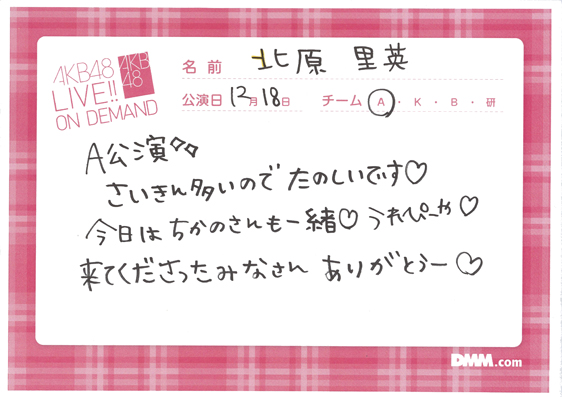 AKB48
LIVE!!
ON DEMAND
AKB
48
名前 北原 里英
公演日 12月18日 チーム A・K・B・研
A公演
さいきん多いので たのしいです♡
今日は ちかのさんも一緒♡ うれぴーや♡
来てくださったみなさん ありがとうー♡
DMM.com